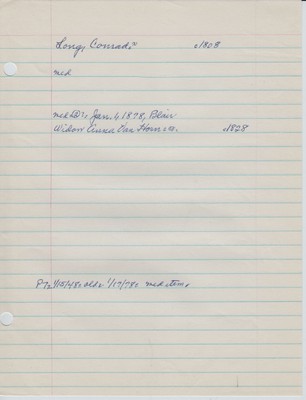 Long, Conrad. c1808
med
med Dr, Jan. 4 1878, Blair
Widow Anna Van Horn c1828
P7, 4/15/48; old. 1/17/78: med item,